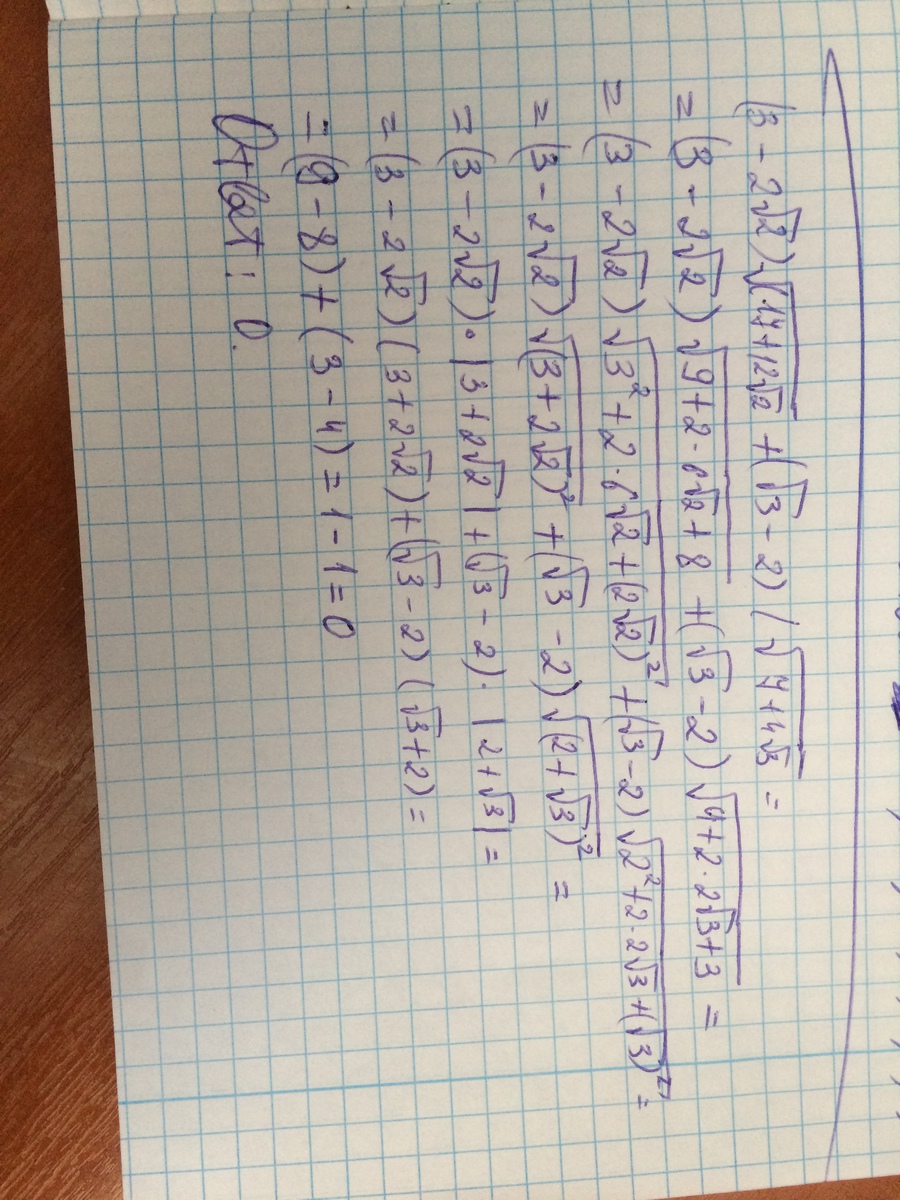 (3 - 2√2)√(17+12√2) + (√3 - 2)(√(7+4√3) =
= (3 - 2√2)√(9+2·6√2+8) + (√3 - 2)√(4+2·2√3+3) =
= (3 - 2√2)√(3²+2·6√2+(2√2)²) + (√3-2)√(2²+2·2√3+(√3)²) =
= (3 - 2√2)√((3+2√2)²) + (√3 - 2)√((2+√3)²) =
= (3 - 2√2)·|3+2√2| + (√3 - 2)·|2+√3| =
= (3 - 2√2)(3+2√2)+(√3-2)(√3+2) =
= (9 - 8)+(3-4) = 1 - 1 = 0
Ответ: 0.